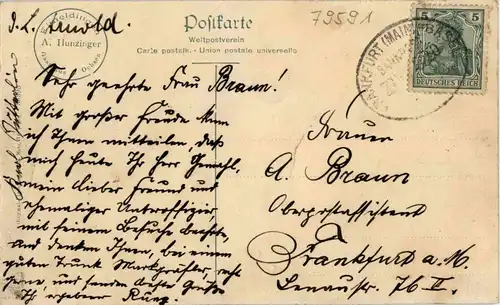 79591
A. Hunzinger
Postkarte
Weltpostverein
Carte postale. - Union postale universelle
FRANKFURT (MAIN)
5 5
DEUTSCHES REICH
Sehr geehrte Frau Braun!
Mit großer Freude kann
ich Ihnen mitteilen, daß
mich heute Ihr Herr Gemahl,
mein lieber Freund und
ehemaliger Unteroffizier,
mit seinem Besuche beehrte,
und denken Ihnen, bei einem
guten Trunk Markgräfler, recht
gerne, und senden beste Grüße
Ihr ergebener
Frauen
A. Braun
Oberpostassistent
Frankfurt a. M.
Lenaustr. 76 II.